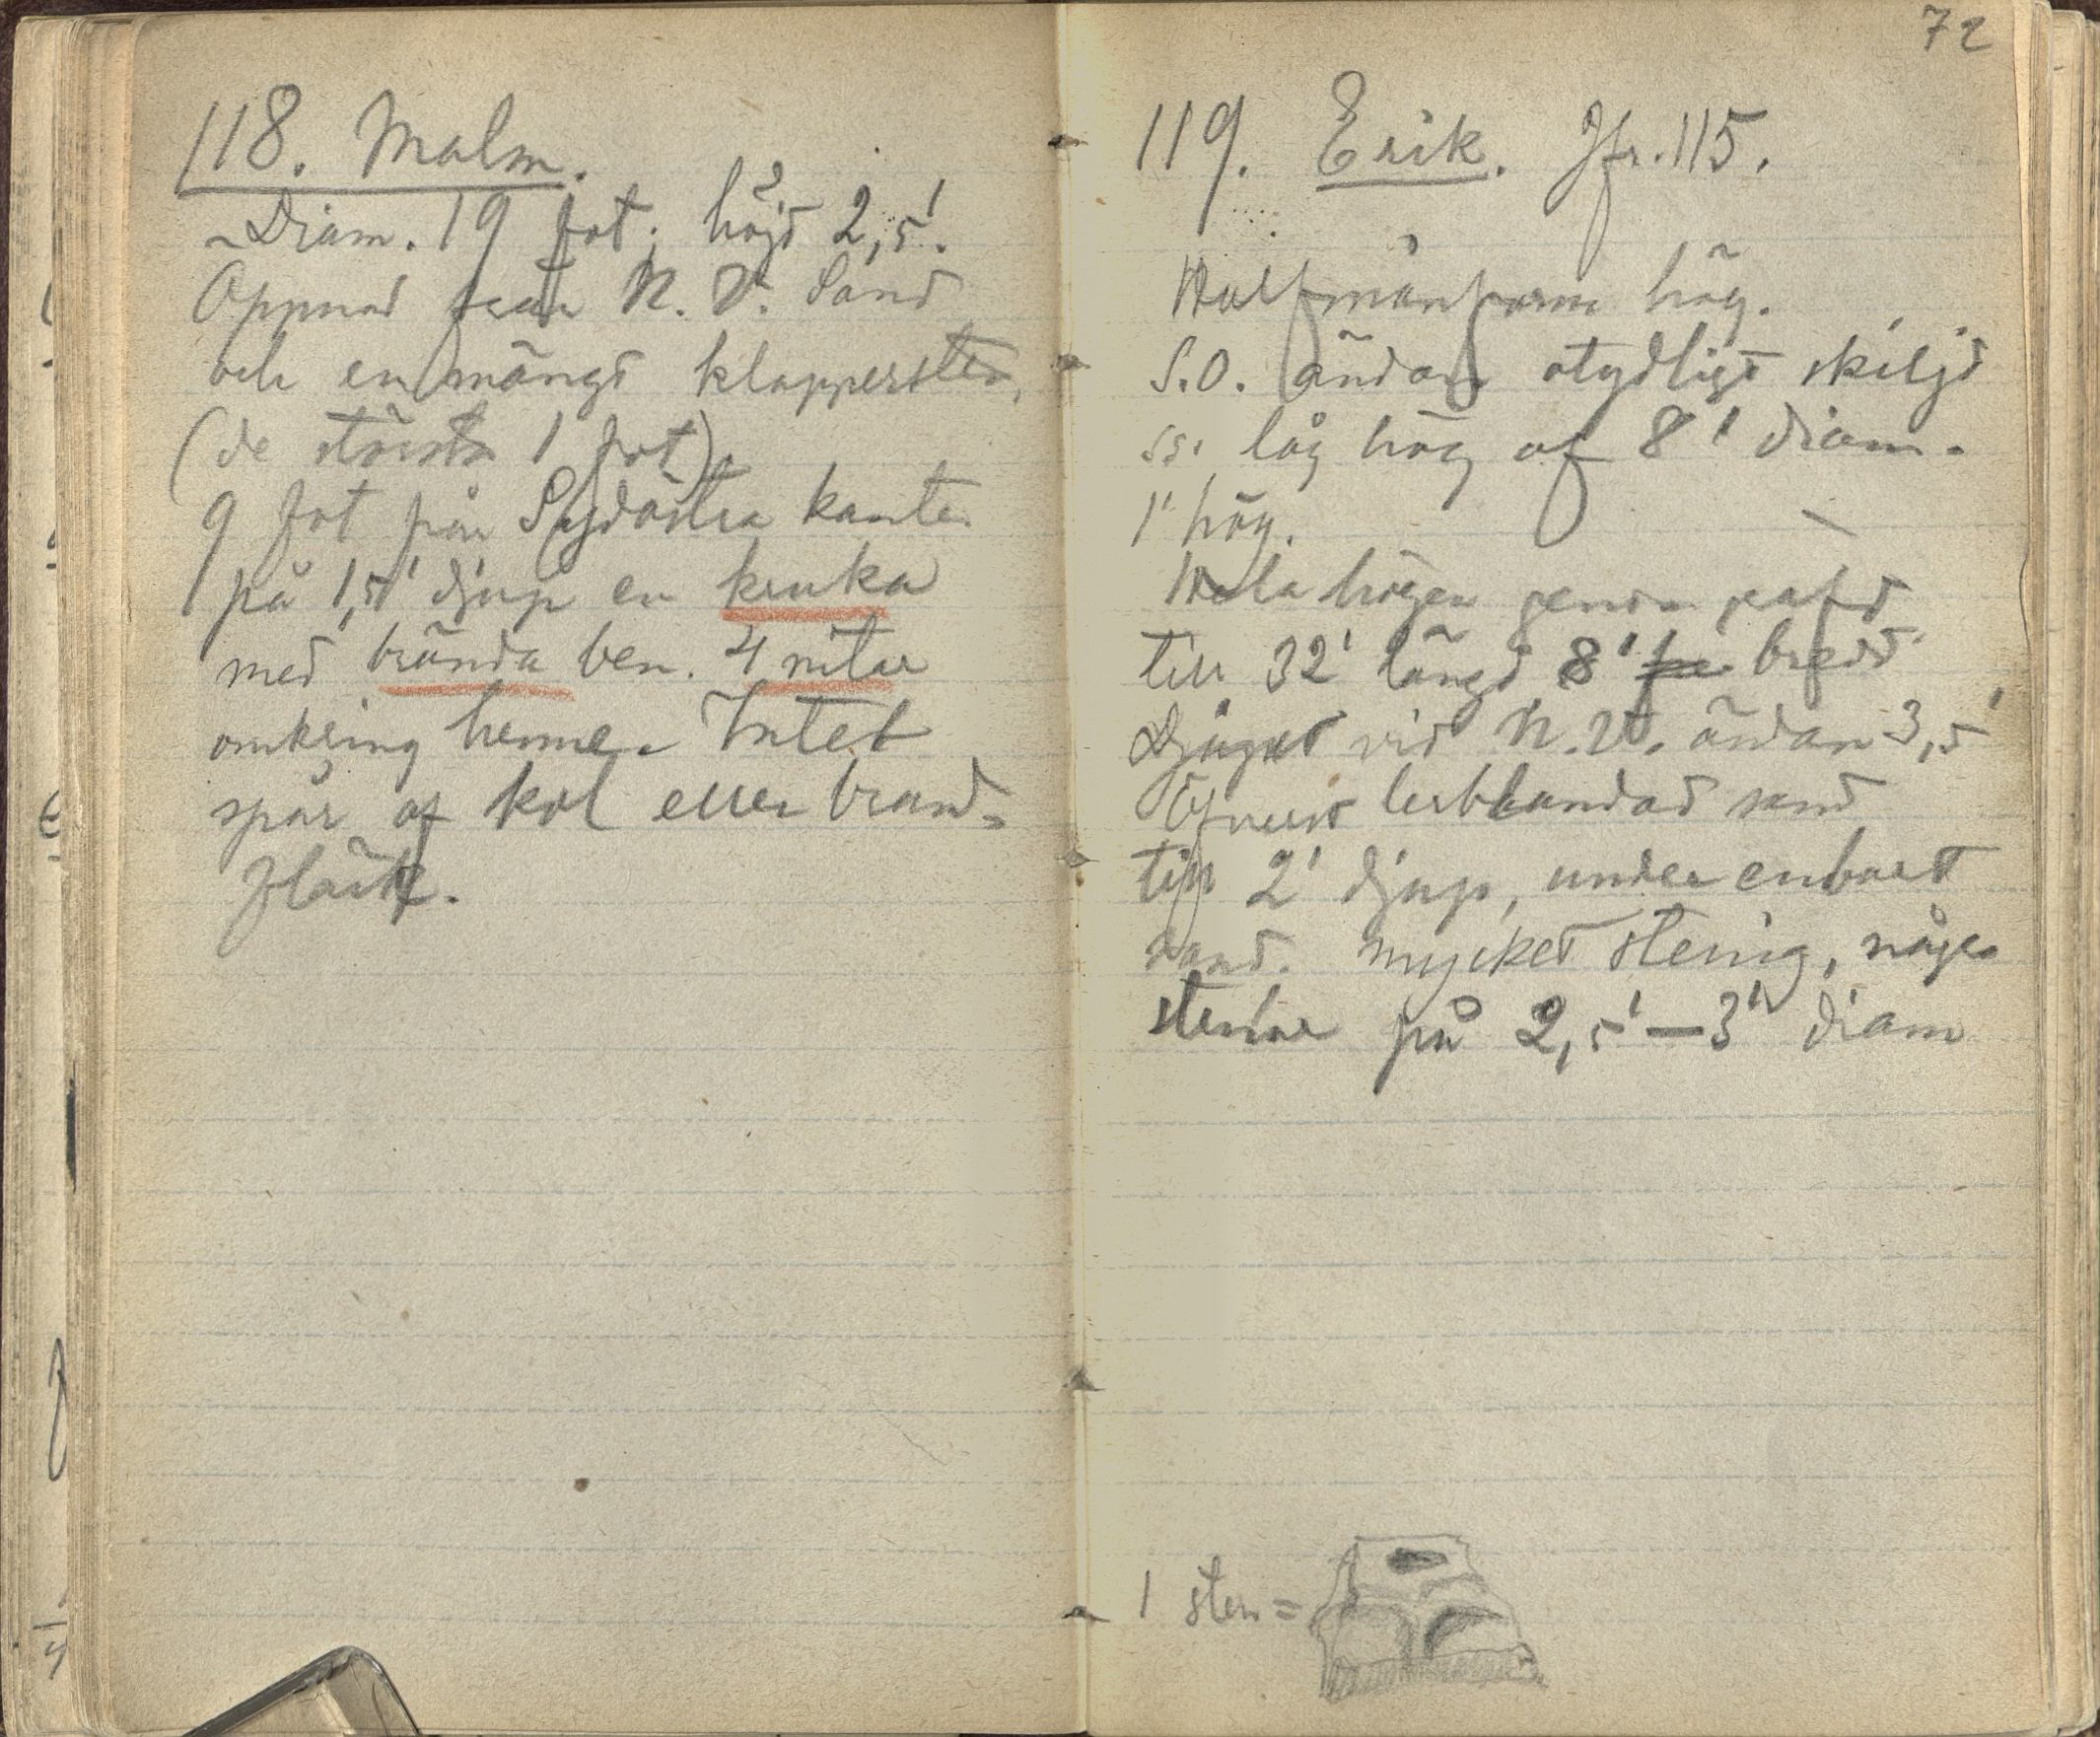 118. Malm.
Diam. 19 fot; höjd 2,5'.
Öppnad från N. V. Sand
och en mängd klappersten,
(de största 1 fot).
9 fot från Sydöstra kanten
på 1,5' djup en kruka
med brända ben. 4 nitar
omkring henne. Intet
spår af kol eller brand-
fläck.
72
119. Erik. Jfr. 115.
Halfmånform hög.
S.O. ändan otydligt skiljd
ss. låg hög af 8' diam.
1' hög.
Hela högen genomgräfd
till 32' längd 8' bredd
Djupet vid N.V. ändan 3,5'
Öfverst lerblandad sand
till 2' djup, under enbart
sand. Mycket stenig, några
stenar på 2,5'—3' diam
1 sten =